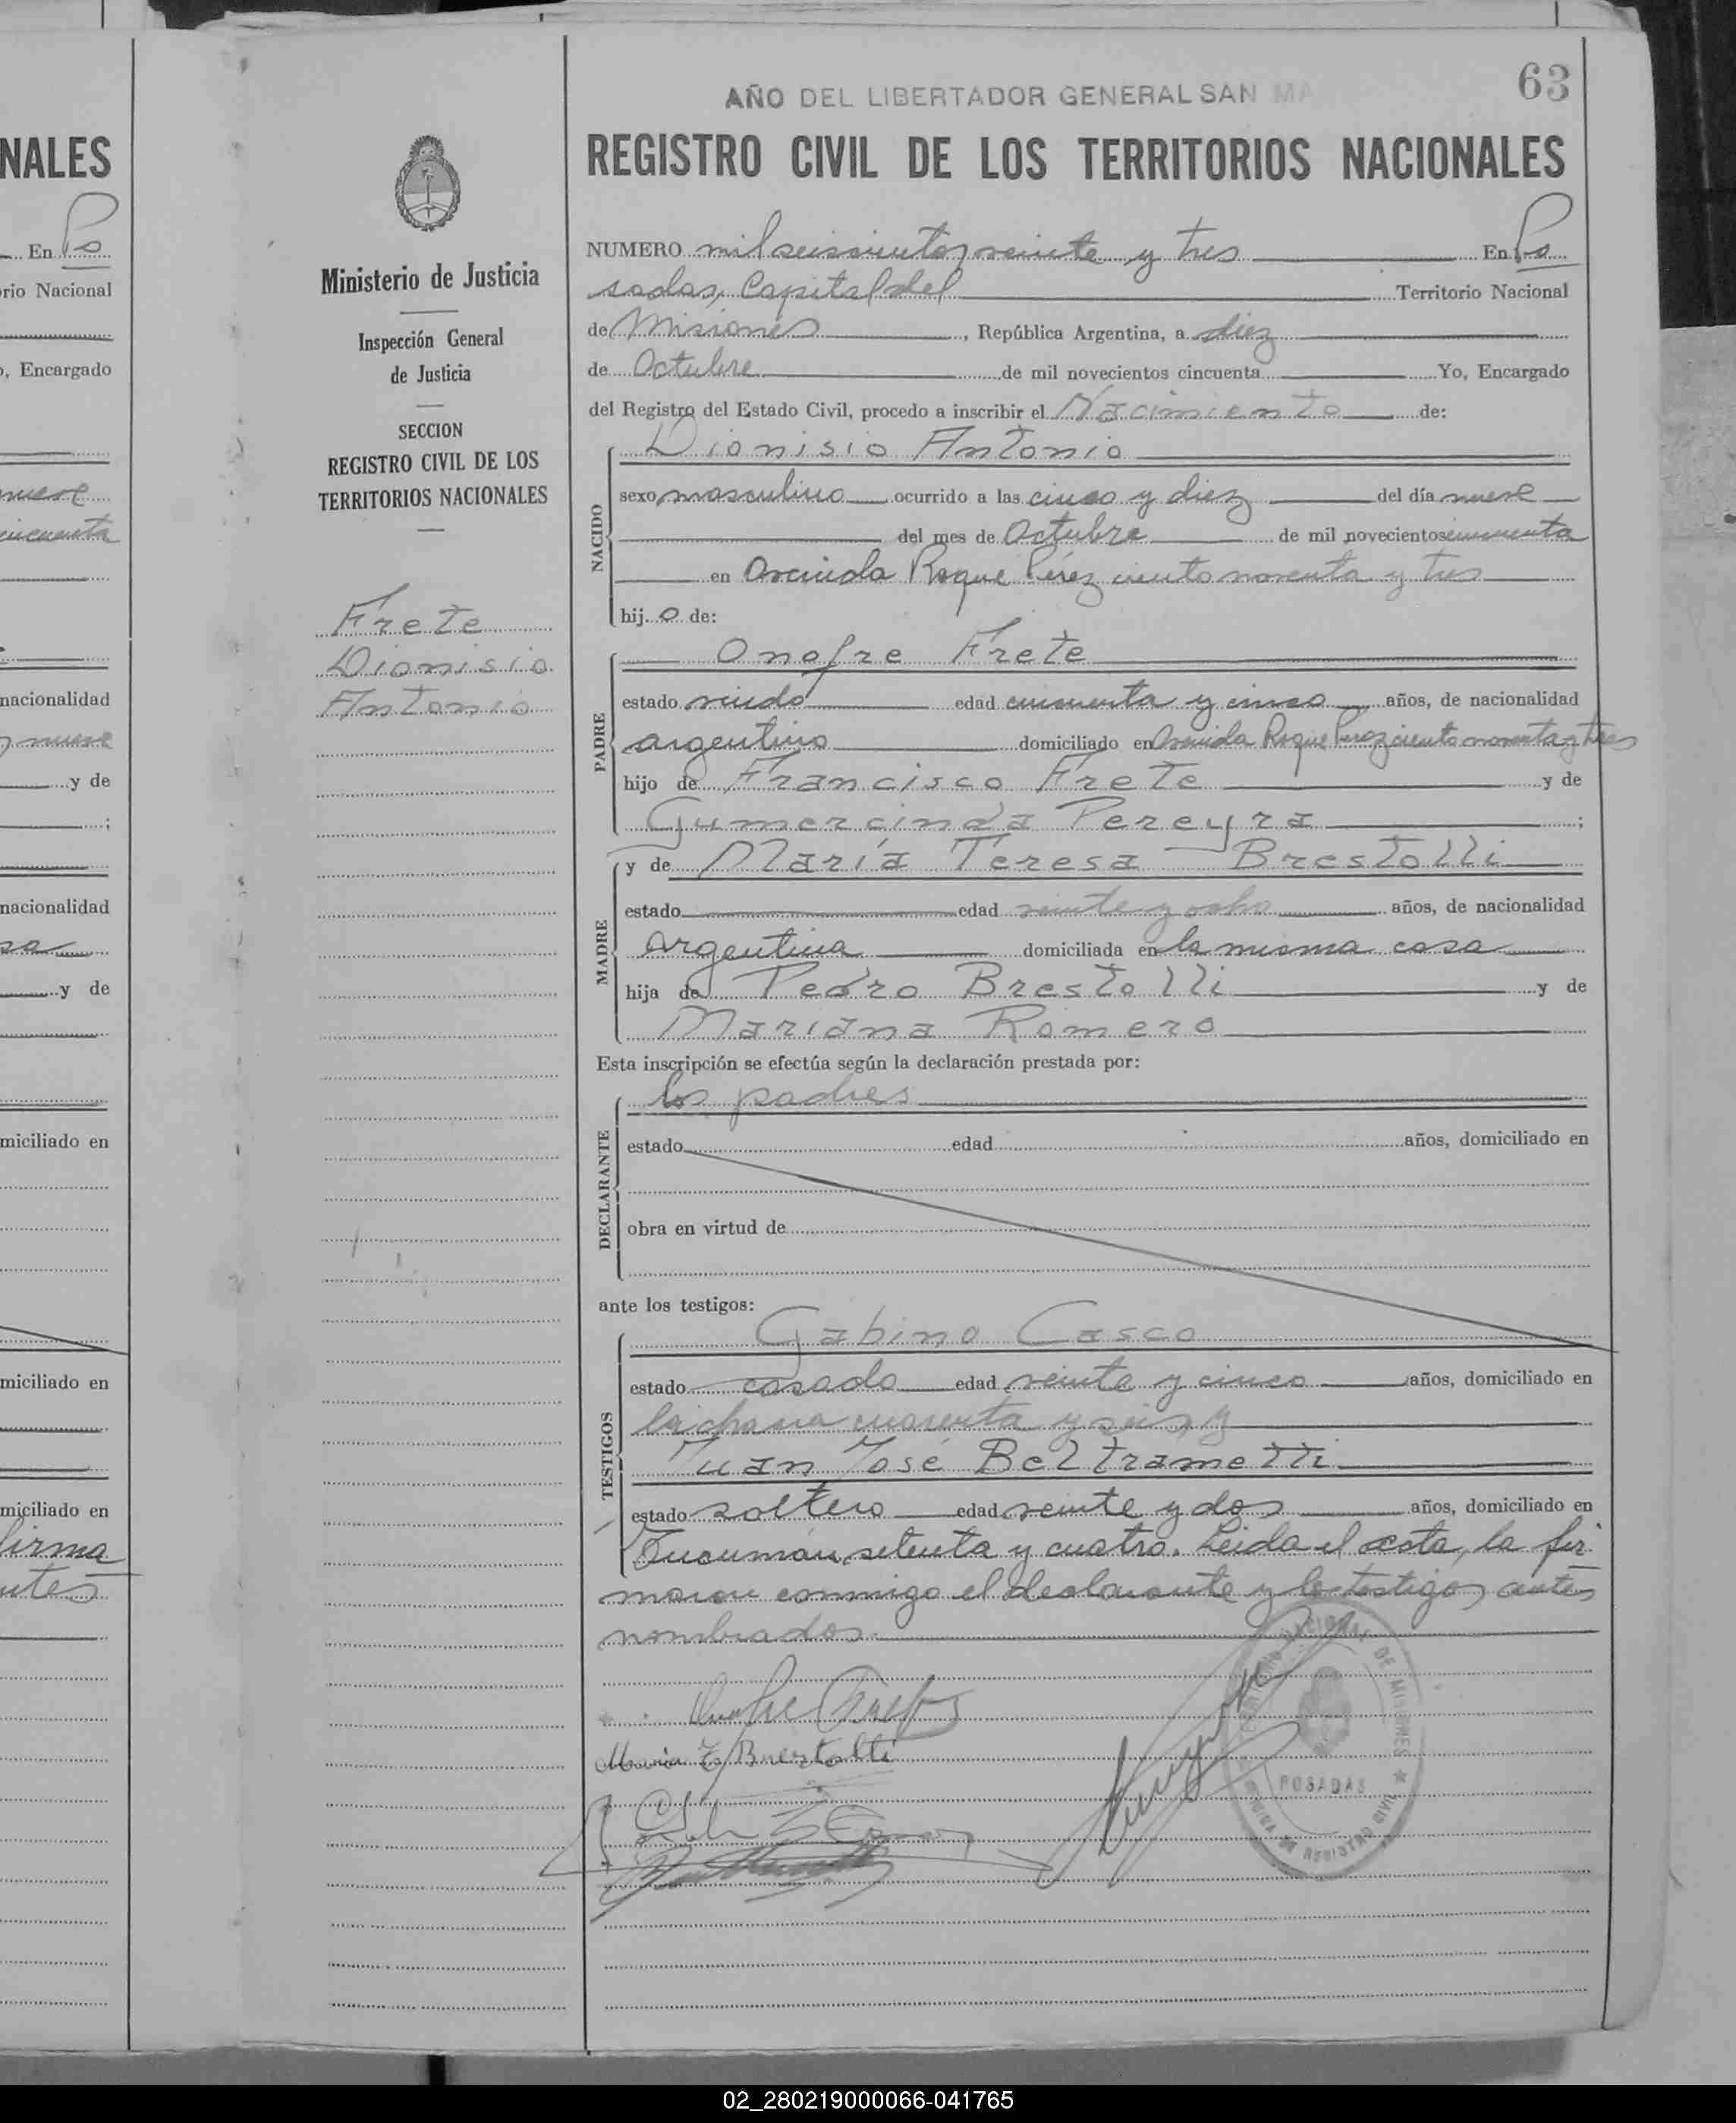 NALES
En Po
rio Nacional
o, Encargado
nueve
cincuenta
nacionalidad
y nueve
y de
;
nacionalidad
sa
y de
miciliado en
miciliado en
miciliado en
firma
ntes
Ministerio de Justicia
Inspección General
de Justicia
SECCION
REGISTRO CIVIL DE LOS
TERRITORIOS NACIONALES
Frete
Dionisio
Antonio
63
AÑO DEL LIBERTADOR GENERAL SAN MA
REGISTRO CIVIL DE LOS TERRITORIOS NACIONALES
NUMERO mil seiscientos veinte y tres En Po
sadas, Capital del Territorio Nacional
de Misiones, República Argentina, a diez
de Octubre de mil novecientos cincuenta Yo, Encargado
del Registro del Estado Civil, procedo a inscribir el Nacimiento de:
NACIDO
Dionisio Antonio
sexo masculino ocurrido a las cinco y diez del día nueve
del mes de Octubre de mil novecientos cincuenta
en Avenida Roque Pérez ciento noventa y tres
hij o de:
PADRE
Onofre Frete
estado viudo edad cincuenta y cinco años, de nacionalidad
argentino domiciliado en Avenida Roque Perez ciento noventa y tres
hijo de Francisco Frete y de
Gumercinda Pereyra ;
MADRE
y de María Teresa Brestolli
estado edad veinte y ocho años, de nacionalidad
argentina domiciliada en la misma casa
hija de Pedro Brestolli y de
Mariana Romero
Esta inscripción se efectúa según la declaración prestada por:
DECLARANTE
los padres
estado edad años, domiciliado en
obra en virtud de
ante los testigos:
TESTIGOS
Gabino Casco
estado casado edad veinte y cinco años, domiciliado en
la chacra cuarenta y seis y
Juan José Beltrametti
estado soltero edad veinte y dos años, domiciliado en
Tucumán, setenta y cuatro. Leida el acta, la fir
maron conmigo el declarante y los testigos antes
nombrados.
Maria T. Brestolli
DE MISIONES
POSADAS
REGISTRO CIVIL
02_280219000066-041765